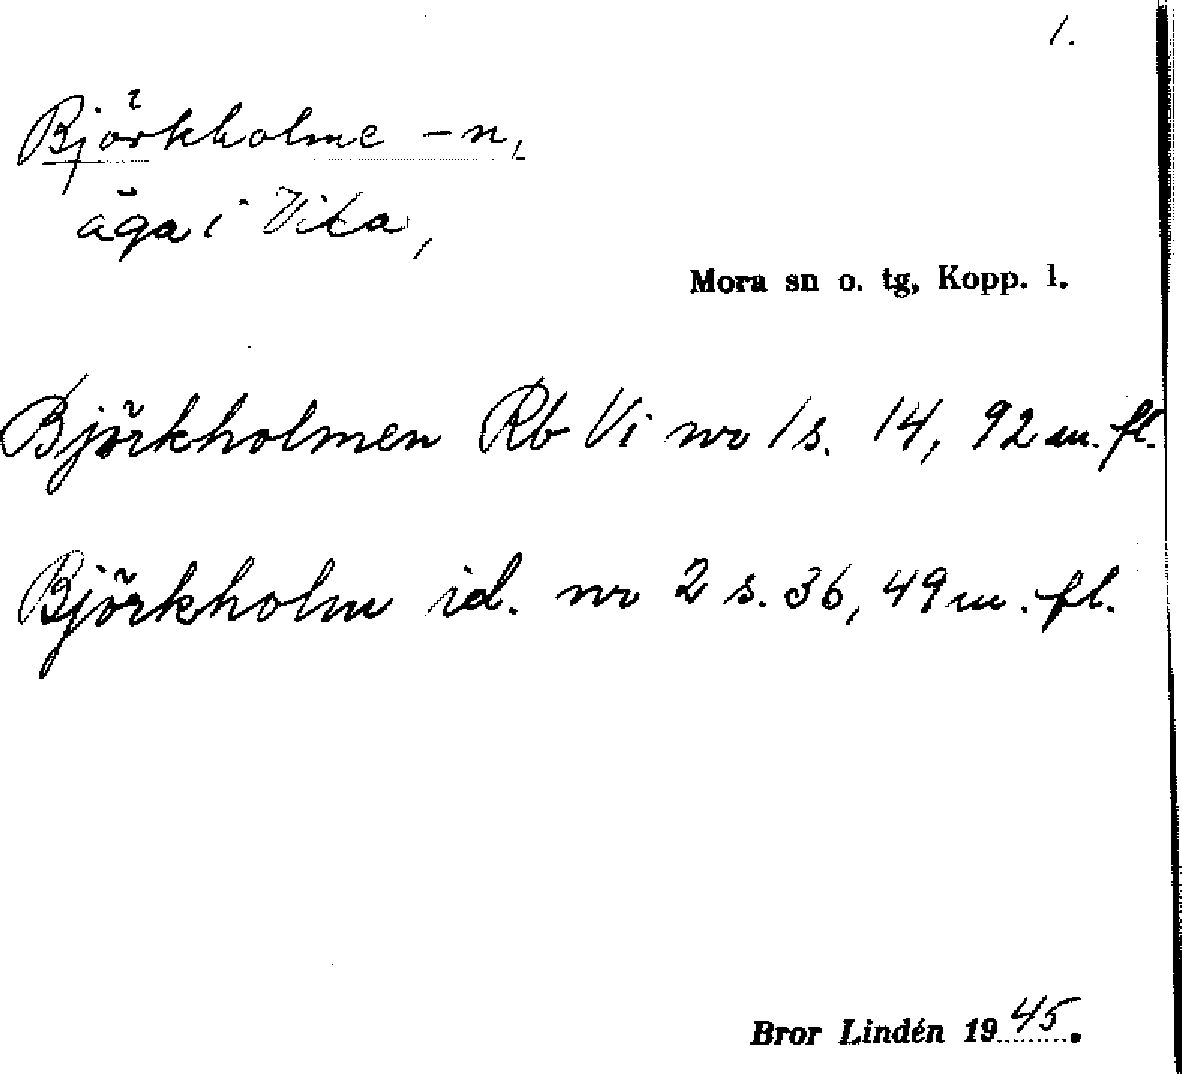 1.
Björkholme -n,
äga i Vika,
Mora sn o. tg, Kopp. l.
Björkholmen Rb Vi nr 1 s. 14, 92 m. fl.
Björkholm id. nr 2 s. 36, 49 m. fl.
Bror Lindén 1945.